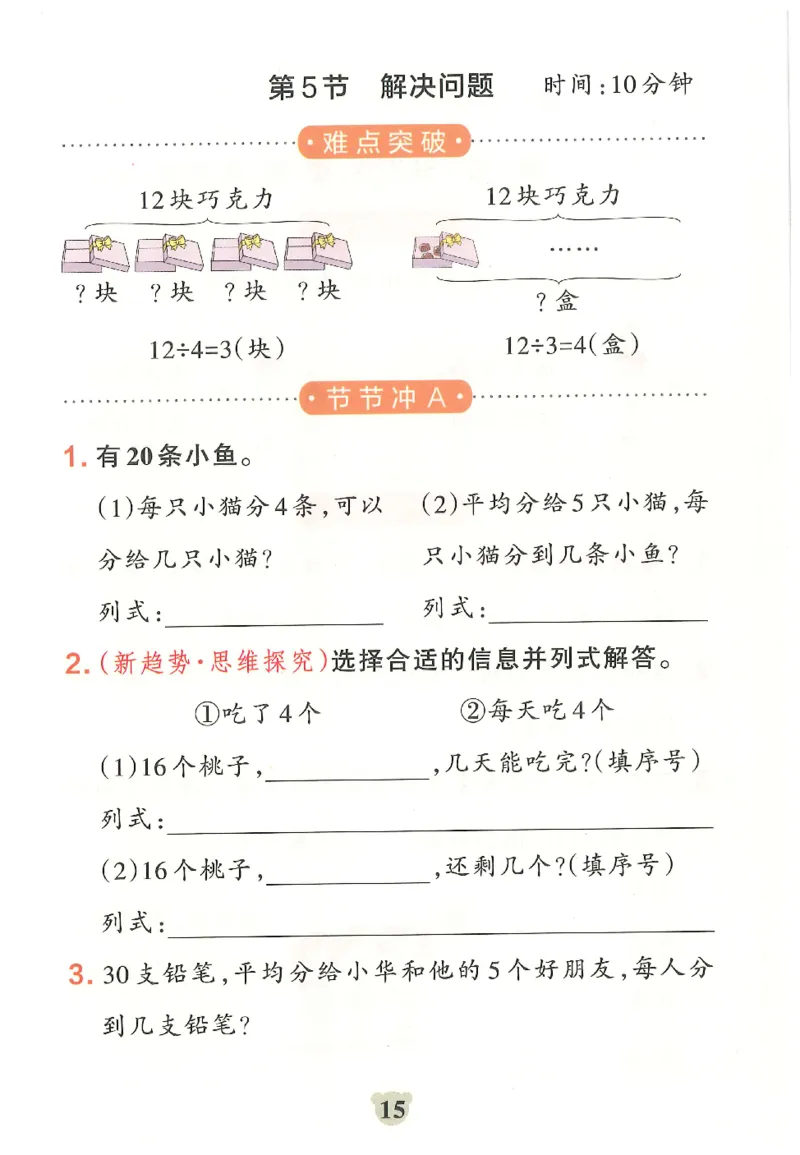 第5节 解决问题 时间:10分钟
·难点突破·
12块巧克力 12块巧克力
……
?块 ?块 ?块 ?块 ?盒
12÷4=3(块) 12÷3=4(盒)
·节节冲A·
1. 有20条小鱼。
(1)每只小猫分4条,可以 (2)平均分给5只小猫,每
分给几只小猫? 只小猫分到几条小鱼?
列式:________ 列式:________
2.(新趋势·思维探究)选择合适的信息并列式解答。
①吃了4个 ②每天吃4个
(1)16个桃子,________,几天能吃完?(填序号)
列式:________
(2)16个桃子,________,还剩几个?(填序号)
列式:________
3. 30支铅笔,平均分给小华和他的5个好朋友,每人分
到几支铅笔?
15